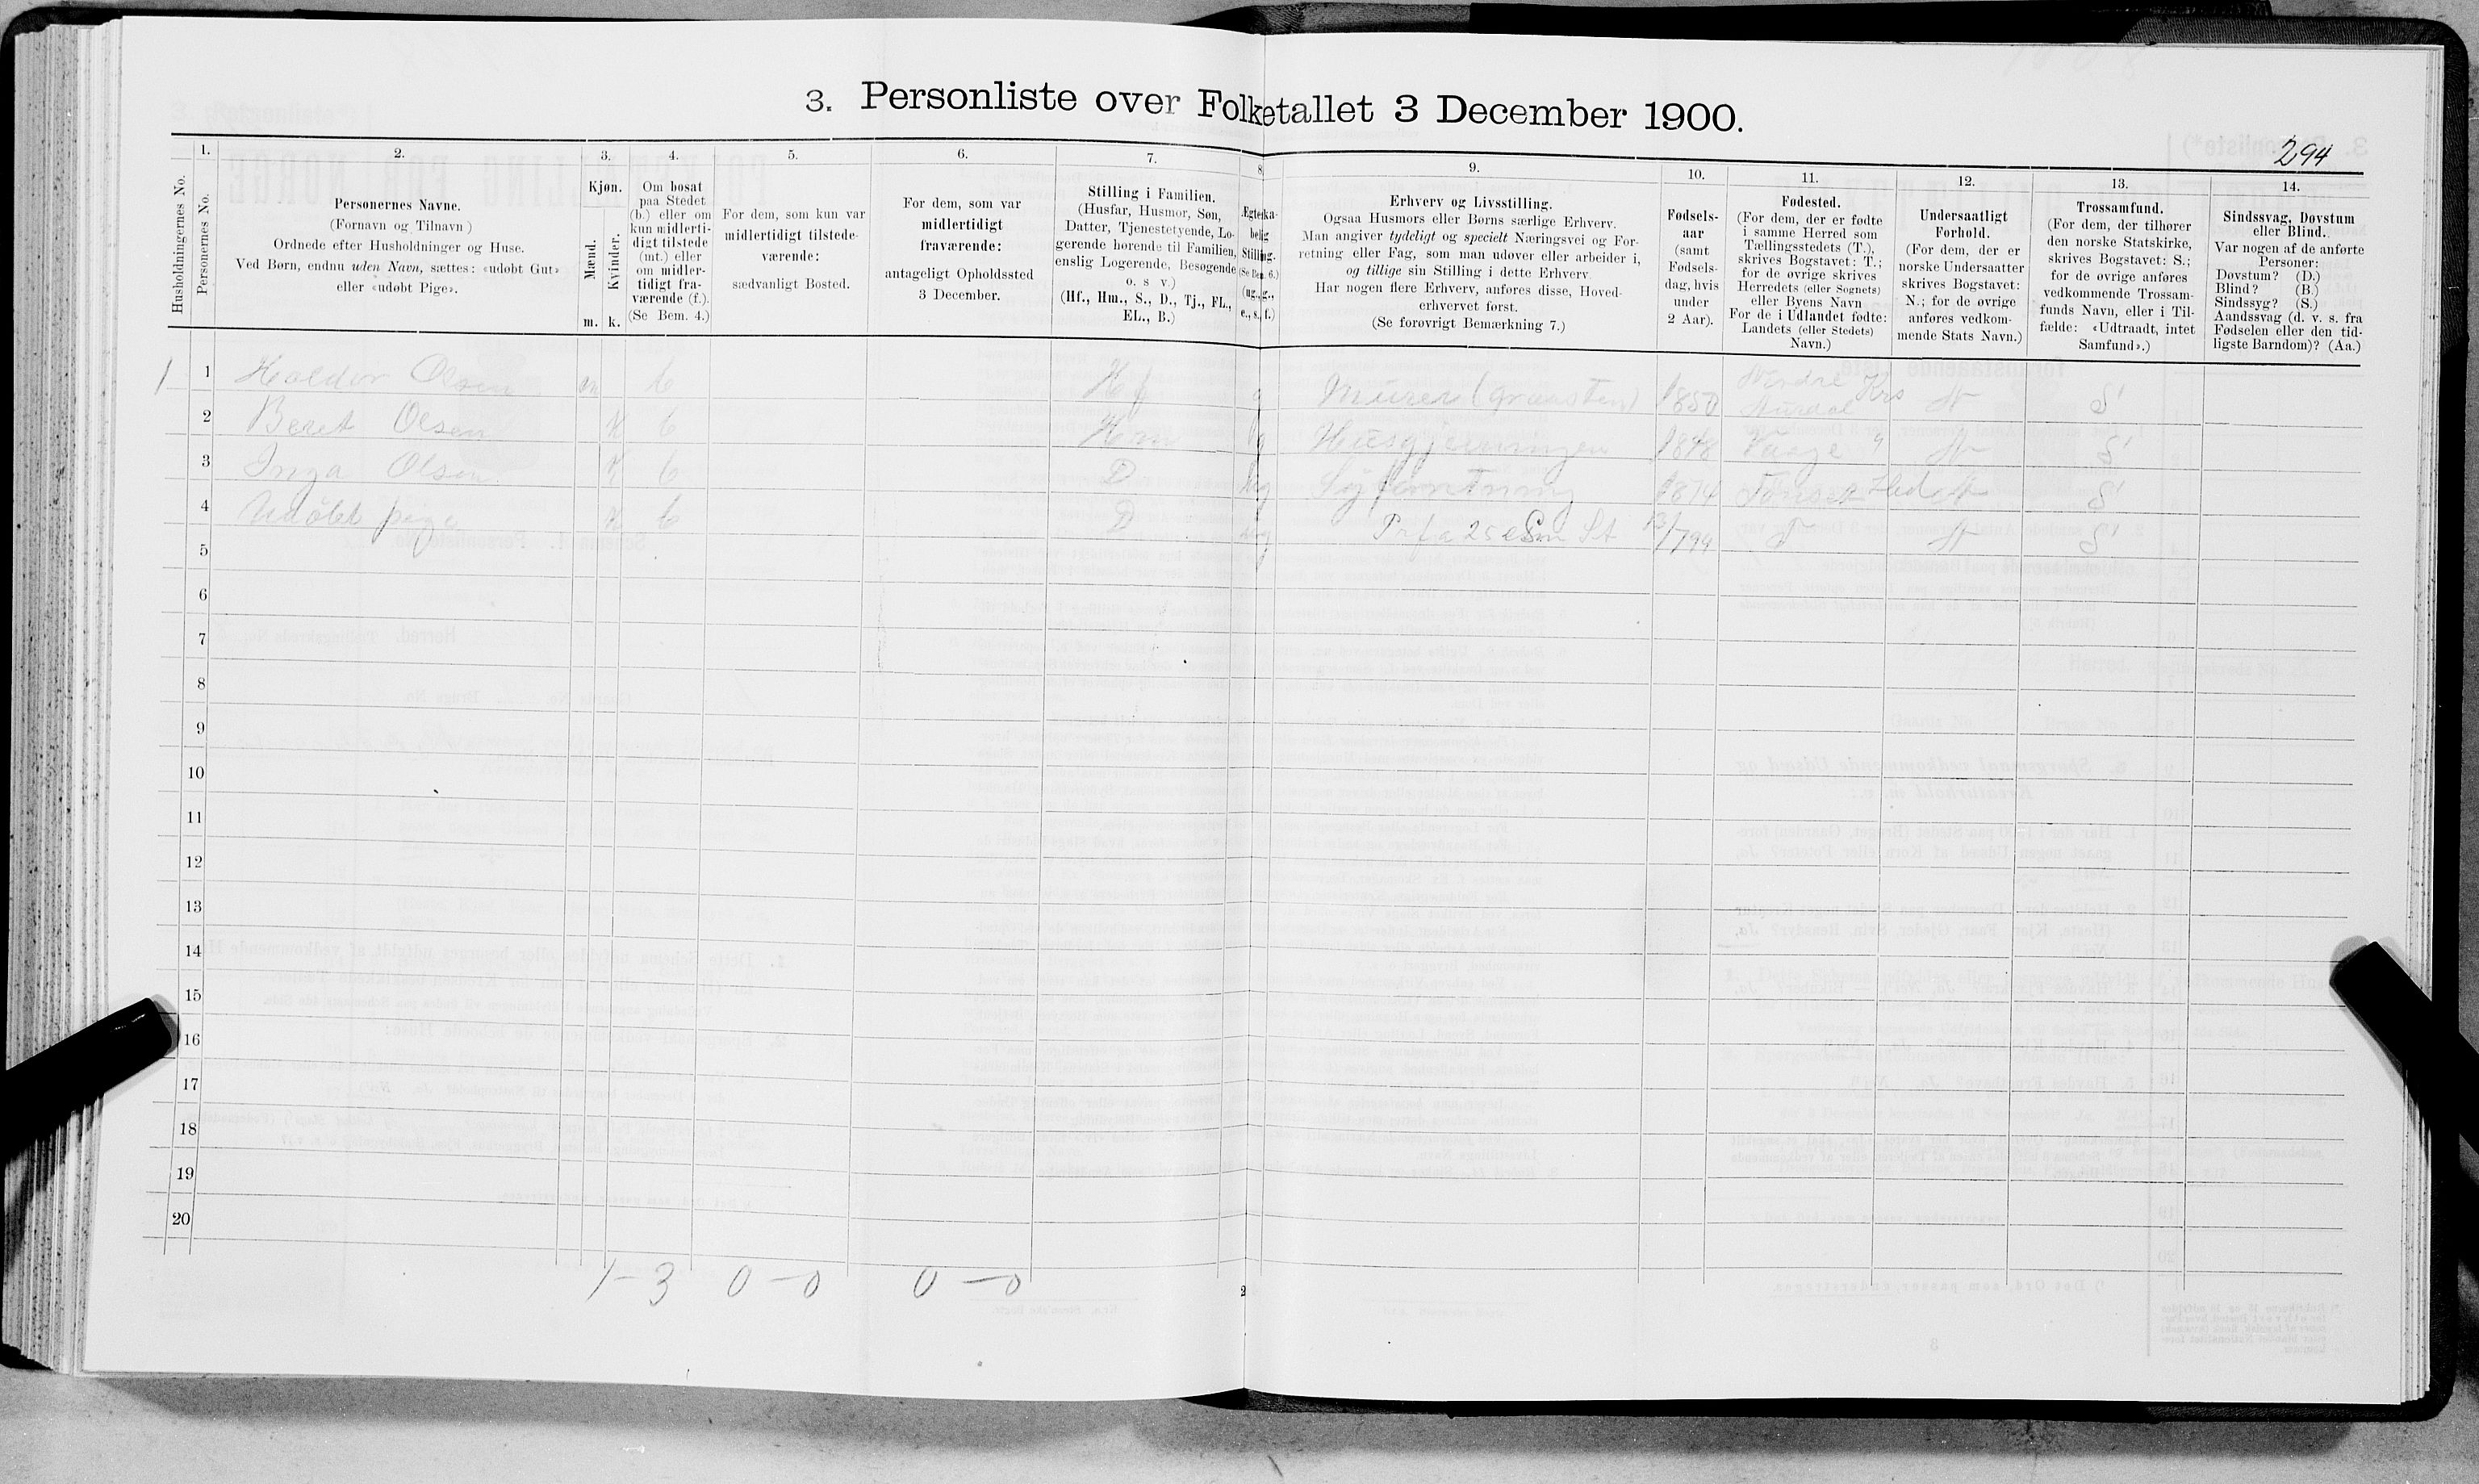 3. Personliste over Folketallet 3 December 1900.
294
Husholdningernes No.
1.
Personernes No.
2.
Personernes Navne.
(Fornavn og Tilnavn)
Ordnede efter Husholdninger og Huse.
Ved Børn, endnu uden Navn, sættes: «udøbt Gut»
eller «udøbt Pige».
3.
Kjøn.
Mænd.
Kvinder.
m. k.
4.
Om bosat
paa Stedet
(b.) eller om
kun midlerti-
digt tilstede
(mt.) eller
om midler-
tidigt fra-
værende (f.).
(Se Bem. 4.)
5.
For dem, som kun var
midlertidigt tilstede-
værende:
sædvanligt Bosted.
6.
For dem, som var
midlertidigt
fraværende:
antageligt Opholdssted
3 December.
7.
Stilling i Familien.
(Husfar, Husmor, Søn,
Datter, Tjenestetyende, Lo-
gerende hørende til Familien,
enslig Logerende, Besøgende
o. s v.)
(Hf., Hm., S., D., Tj., FL.,
EL., B.)
8.
Ægteska-
belig
Stilling.
(Se Bem. 6.)
(ug., g.,
e., s., f.)
9.
Erhverv og Livsstilling.
Ogsaa Husmors eller Børns særlige Erhverv.
Man angiver tydeligt og specielt Næringsvei og For-
retning eller Fag, som man udøver eller arbeider i,
og tillige sin Stilling i dette Erhverv.
Har nogen flere Erhverv, anføres disse, Hoved-
erhvervet først.
(Se forøvrigt Bemærkning 7.)
10.
Fødsels-
aar
(samt
Fødsels-
dag, hvis
under
2 Aar).
11.
Fødested.
(For dem, der er fødte
i samme Herred som
Tællingsstedets (T.),
skrives Bogstavet: T.;
for de øvrige skrives
Herredets (eller Sognets)
eller Byens Navn
For de i Udlandet fødte:
Landets (eller Stedets)
Navn.)
12.
Undersaatligt
Forhold.
(For dem, der er
norske Undersaatter
skrives Bogstavet:
N.; for de øvrige
anføres vedkom-
mende Stats Navn.)
13.
Trossamfund.
(For dem, der tilhører
den norske Statskirke,
skrives Bogstavet: S.;
for de øvrige anføres
vedkommende Trossam-
funds Navn, eller i Til-
fælde: «Udtraadt, intet
Samfund».)
14.
Sindssvag, Døvstum
eller Blind.
Var nogen af de anførte
Personer:
Døvstum? (D.)
Blind? (B.)
Sindssyg? (S.)
Aandssvag (d. v. s. fra
Fødselen eller den tid-
ligste Barndom)? (Aa.)
1 1 Haldor Olsen m b Hf g Murer (graasten) 1850 Nordre Aurdal Krs N S
2 Beret Olsen K b Hm g Husgjerningen 1848 " N S
3 Inga Olsen K b D ug Syforretning 1874 Tønset Hed N S
4 Udøbt pige K b D ug T N S
5
6
7
8
9
10
11
12
13
14
15
16
17
18
19
20
1 - 3 0 - 0 0 - 0
2